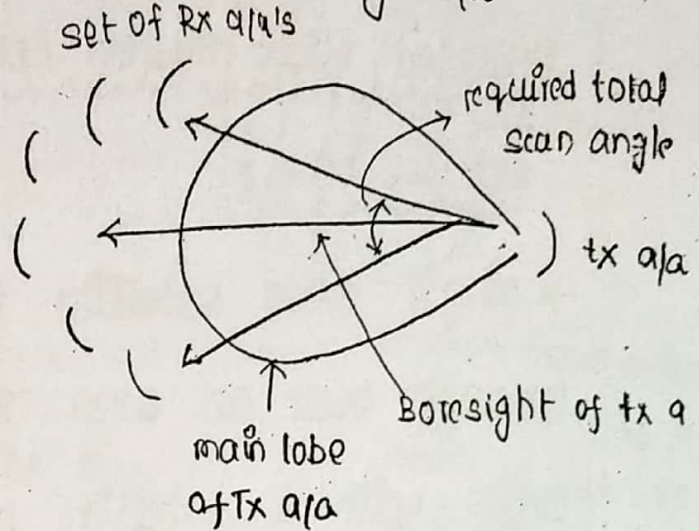 set of Rx a/a's
required total
scan angle
tx a/a
Boresight of tx a
main lobe
of Tx a/a